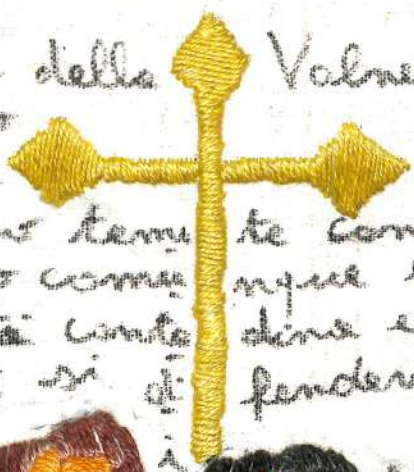 della Valne
temu te com
comu nque
conta dina e
si di fender